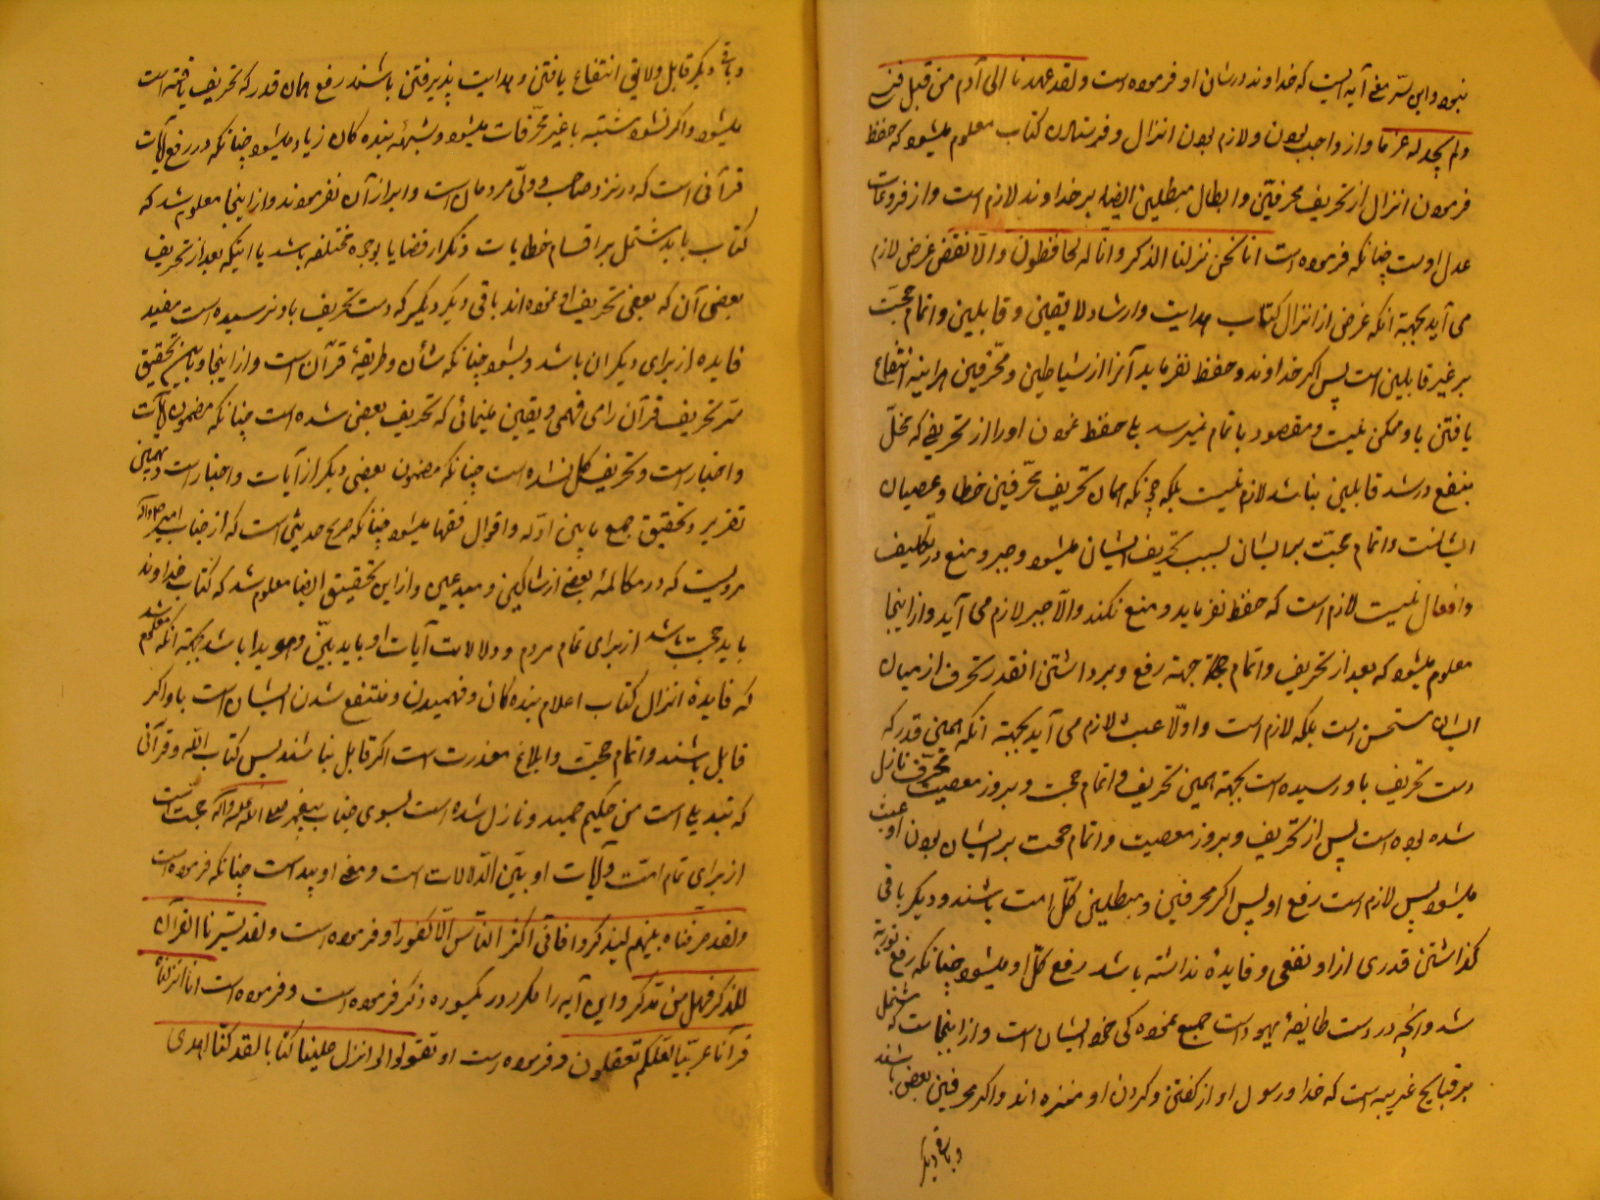 نبود و این سرّ معنی آیه ایست که خداوند در شان او فرموده است و لقد عهدنا الی آدم من قبل فنسی
و لم نجد له عزما و از واجب بودن و لازم بودن انزال و فرستادن کتاب معلوم میشود که حفظ
فرمودن انزال از تحریف محرفین و ابطال مبطلین ایضا بر خداوند لازم است و از فروعات
عدل اوست چنانکه فرموده است انا نحن نزلنا الذکر و انّا له لحافظون و الّا نقض غرض لازم
می آید بجهة آنکه غرض از انزال کتاب هدایت و ارشاد لایقین و قابلین و اتمام حجّت
بر غیر قابلین است پس اگر خداوند حفظ نفرماید آنرا از شیاطین و محرّفین هر اینه انتفاع
یافتن باو ممکن نیست و مقصود باتمام نمیرسد بلی حفظ نمودن او را از تحریفی که مخلّ
بنفع و رشد قابلین نباشد لازم نیست بلکه چونکه همان تحریف محرّفین خطا و عصیان
ایشانست و اتمام حجّت بر ایشان بسبب تحریف ایشان میشود و جبر و منع در تکلیف
و افعال نیست لازم است که حفظ نفرماید و منع نکند و الّا جبر لازم می آید و از اینجا
معلوم میشود که بعد از تحریف و اتمام حجة جهة رفع و برداشتن انقدر تحرف از میان
ایشان مستحسن است بلکه لازم است و اولا عبث لازم می آید بجهة آنکه همین قدر که
دست تحریف باو رسیده است بجهة همین تحریف و اتمام حجت و بروز معصیت محرّف نازل
شده بوده است پس از تحریف و بروز معصیت و اتمام حجت بر ایشان بودن او عبث
میشود پس لازم است رفع او پس اگر محرفین و مبطلین کلّ امت باشند و دیگر باقی
گذاشتن قدری از او نفعی و فایدهٔ نداشته باشد رفع کلّ او میشود چنانکه رفع توریة
شد و آنچه در دست طایفهٔ یهود است جمیع نموده کی خود ایشان است و از اینجاست که مشتمل
بر قبایح غریبه است که خدا و رسول او از گفتن و کردن او منزه اند و اگر محرفین بعض باشند
و باقی دیگر
و باقی دیگر قابل و لایق انتفاع یافتن و هدایت پذیرفتن باشند رفع همان قدر که تحریف یافته است
میشود و اگر نشود مشتبه با غیر محرّفات میشود و شبههٔ بنده کان زیاد میشود چنانکه در رفع آیات
قرآنی است که در نزد صاحب و ولّی مردمان است و ابراز آن نفرمودند و از اینجا معلوم شد که
کتاب باید مشتمل بر اقسام خطابات و تکرار قضایا بوجوه مختلفه باشد یا اینکه بعد از تحریف
بعضی آن که بعضی تحریف او نموده اند باقی دیگر که دست تحریف باو نرسیده است مفید
فایده از برای دیگران باشد و بشود چنانکه شأن و طریقهٔ قرآن است و از اینجا و باین تحقیق
سرّ تحریف قرآن را می فهمی و یقین مینمائی که تحریف بعض شده است چنانکه مضمون آیات
و اخبار است و تحریف کل نشده است چنانکه مضمون بعضی دیگر از آیات و اخبار است و بهمین
تقریر و تحقیق جمع مابین ادلّه و اقوال فقها میشود چنانکه صریح حدیثی است که از جناب امیر
مرویست که در مکالمهٔ بعضی از شاکین و مبدعین و از این تحقیق ایضا معلوم شد که کتاب خداوند
باید حجت باشد از برای تمام مردم و دلالات آیات او باید بیّن و هویدا باشد بجهة آنکه معلوم شد
که فایدهٔ انزال کتاب اعلام بنده کان و فهمیدن و منتفع شدن ایشان است باو اگر
قابل باشند و اتمام حجّت و ابلاغ معذرت است اگر قابل نباشند پس کتاب الله و قرآنی
که تبدیلی است من حکیم حمید و نازل شده است بسوی جناب پیغمبر صلی الله علیه و آله حجت است
از برای تمام امّت و آیات او بیّن الدّلالات است و معنی او پیداست چنانکه فرموده است
و لقد صرّفناه بینهم لیذکروا فابی اکثر النّاس الّا کفورا و فرموده است و لقد یسّرنا القرآن
للذکر فهل من مدّکر و این آیه را مکرر در یکسوره ذکر فرموده است و فرموده است انا انزلناه
قرآنا عربیّا لعلّکم تعقلون و فرموده است او تقولوا لو انزل علینا کتابا لقد کنّا اهدی